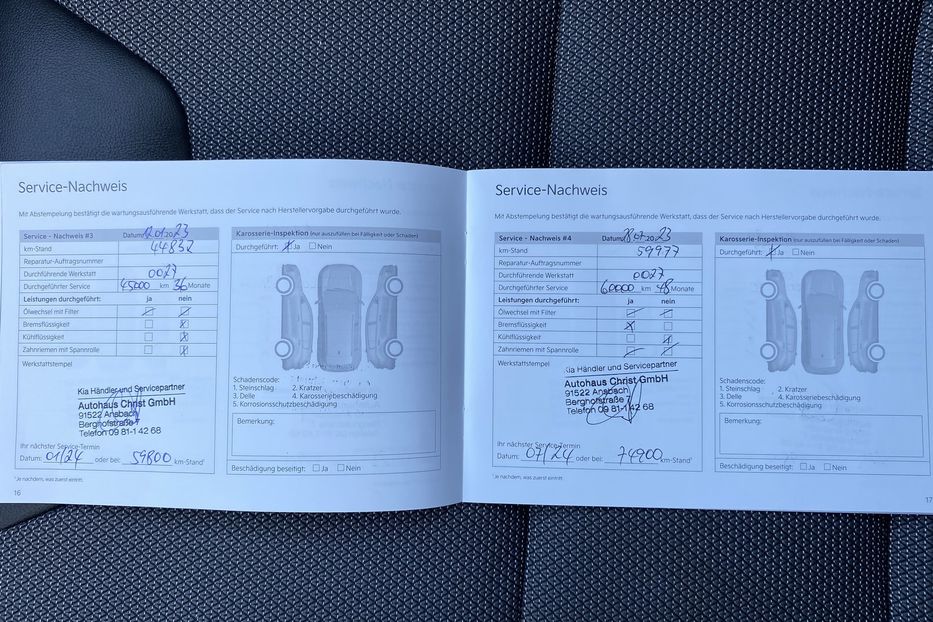 Service-Nachweis
Mit Abstempelung bestätigt die wartungsausführende Werkstatt, dass der Service nach Herstellervorgabe durchgeführt wurde.
Service – Nachweis #3 Datum: 12.01.2023
km-Stand 44832
Reparatur-Auftragsnummer
Durchführende Werkstatt 0027
Durchgeführter Service 45000 km 36 Monate
Leistungen durchgeführt: ja nein
Ölwechsel mit Filter
Bremsflüssigkeit
Kühlflüssigkeit
Zahnriemen mit Spannrolle
Werkstattstempel
Kia Händler und Servicepartner
Autohaus Christ GmbH
91522 Ansbach
Berghofstraße 7
Telefon 09 81-1 42 68
Ihr nächster Service-Termin
Datum: 01/24 oder bei: 59800 km-Stand¹
¹Je nachdem, was zuerst eintritt.
16
Karosserie-Inspektion (nur auszufüllen bei Fälligkeit oder Schäden)
Durchgeführt: Ja Nein
Schadenscode:
1. Steinschlag 2. Kratzer
3. Delle 4. Karosseriebeschädigung
5. Korrosionsschutzbeschädigung
Bemerkung:
Beschädigung beseitigt: Ja Nein
Service-Nachweis
Mit Abstempelung bestätigt die wartungsausführende Werkstatt, dass der Service nach Herstellervorgabe durchgeführt wurde.
Service – Nachweis #4 Datum: 28.07.2023
km-Stand 59977
Reparatur-Auftragsnummer
Durchführende Werkstatt 0027
Durchgeführter Service 60000 km 48 Monate
Leistungen durchgeführt: ja nein
Ölwechsel mit Filter
Bremsflüssigkeit
Kühlflüssigkeit
Zahnriemen mit Spannrolle
Werkstattstempel
Kia Händler und Servicepartner
Autohaus Christ GmbH
91522 Ansbach
Berghofstraße 7
Telefon 09 81-1 42 68
Ihr nächster Service-Termin
Datum: 07/24 oder bei: 74900 km-Stand¹
¹Je nachdem, was zuerst eintritt.
Karosserie-Inspektion (nur auszufüllen bei Fälligkeit oder Schäden)
Durchgeführt: Ja Nein
Schadenscode:
1. Steinschlag 2. Kratzer
3. Delle 4. Karosseriebeschädigung
5. Korrosionsschutzbeschädigung
Bemerkung:
Beschädigung beseitigt: Ja Nein
17